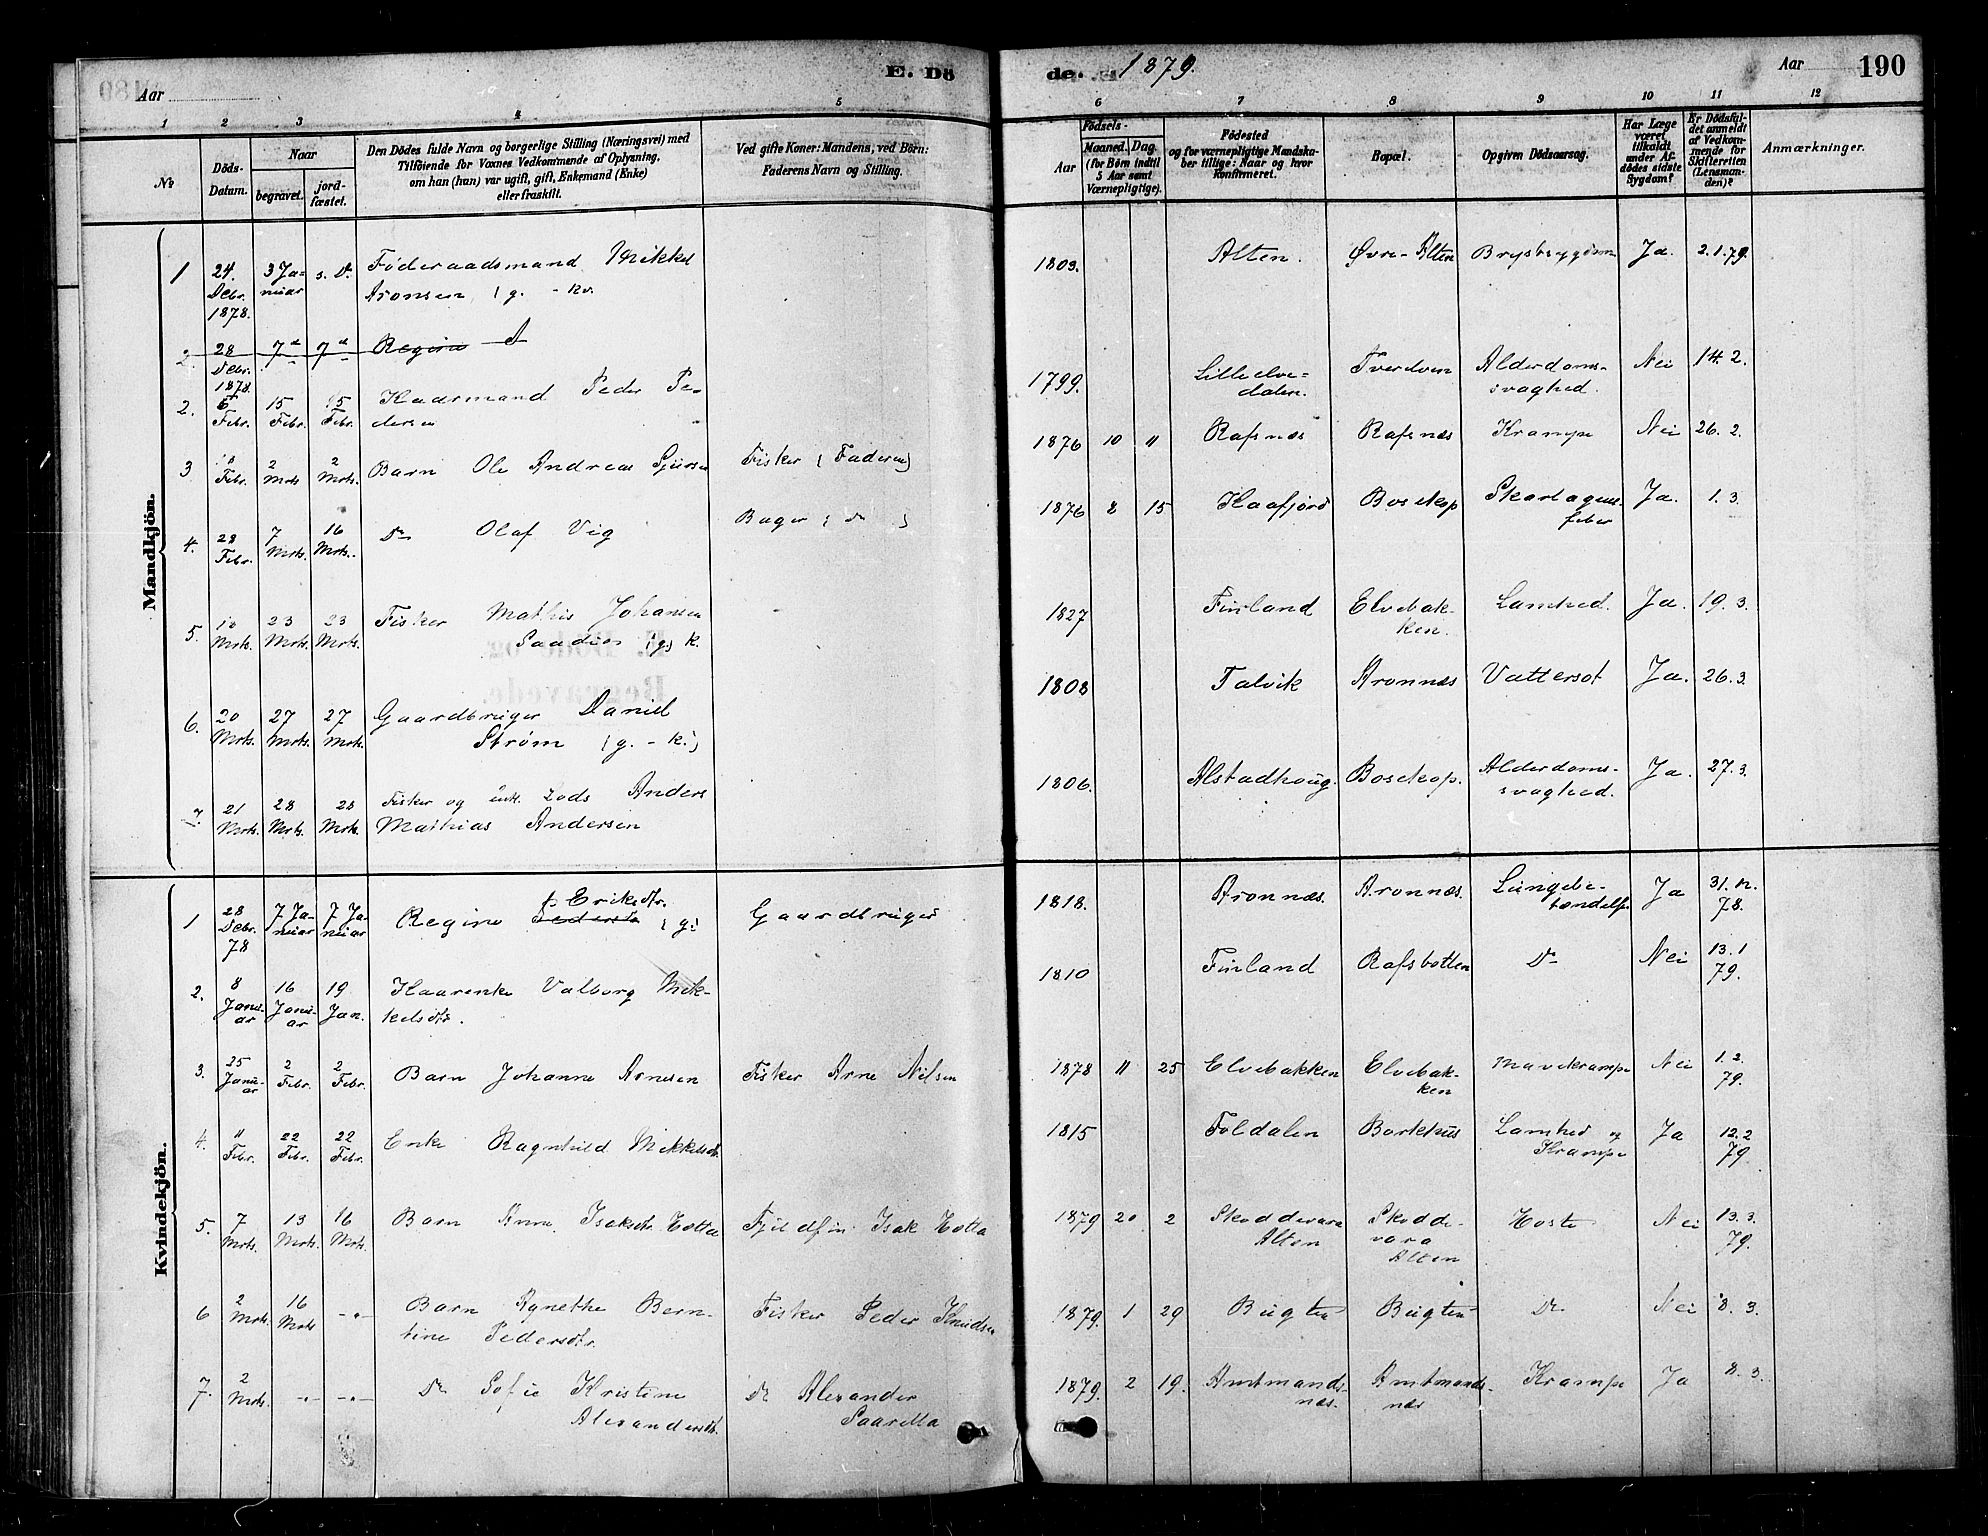 Aar
E. Dö
de. 1879.
Aar
190
1 2 3 4 5 6 7 8 9 10 11 12
№
Döds-
Datum.
Naar
begravet.
jord-
fæstet.
Den Dödes fulde Navn og borgerlige Stilling (Næringsvei) med
Tilföiende for Voxnes Vedkommende af Oplysning,
om han (hun) var ugift, gift, Enkemand (Enke)
eller fraskilt.
Ved gifte Koner: Mandens, ved Börn:
Faderens Navn og Stilling.
Födsels-
Aar
Maaned. Dag
(for Börn indtil
5 Aar samt
Værnepligtige).
Födested
og for værnepligtige Mandska-
ber tillige: Naar og hvor
konfirmeret.
Bopæl.
Opgiven Dödsaarsag.
Har Læge
været
tilkaldt
under Af-
dödes sidste
Sygdom?
Er Dödsfal-
det anmeldt
af Vedkom-
mende for
Skifteretten
(Lensman-
den)?
Anmærkninger.
Mandkjön.
1 24. Debr. 1878. 3 Ja-nuar s. D. Föderaadsmand Mikkel
Aronsen (g. - Kv. 1803. Alten. Øvre-Alten Brystsygdom Ja. 2.1.79.
2. 28 Debr. 1878. 7 7 Regine A
2. 6 Febr. 15 Febr. 15 Febr. Kaarmand Peder Pe-
dersen 1799. Lilleelve-
dalen. Tverelven Alderdoms-
svaghed. Nei 14. 2.
3 18 Febr. 2 Mrts 2 Mrts. Barn Ole Andreas Sjursen Fisker (Faderen) 1876 10 11 Rafsnæs Rafsnæs Krampe Nei 26. 2.
4. 28 Febr. 7 Mrts. 16 Mrts. Do Olaf Vig Bager (do) 1876 8 15 Kaafjord Bosekop Skarlagens-
feber Ja. 1. 3.
5. 10 Mrts. 23 Mrts. 23 Mrts. Fisker Mathis Johansen
(g) k. 1827 Finland Elvebak-
ken. Lamhed. Ja. 19. 3.
6. 20 Mrts. 27 Mrts. 27 Mrts. Gaardbruger Daniel
Strøm (g. - k.) 1808 Talvik Aronnæs Vattersot Ja. 26. 3.
7. 21 Mrts. 28 Mrts. 28 Mrts. Fisker og Anders
Mathias Andersen 1806. Alstadhoug. Bosekop. Alderdoms-
svaghed. Ja. 27. 3.
Kvindekjön.
1 28 Debr. 78 7 Ja-nuar 7 Ja-nuar Regine Pedersdtr Eriksdtr. (g.) Gaardbruger 1818. Aronnæs. Aronnæs. Lungebe-
tændelse Ja 31. 12. 78.
2. 8 Janu-ar 16 Janu-ar 19 Jan. Kaarenke Valborg Mik-
kelsdtr. 1810 Finland Rafsbotten Do Nei 13. 1 79.
3. 25 Janu-ar 2 Febr. 2 Febr. Barn Johanne Arnesen Fisker Arne Nilsen 1878 11 25 Elvebakken Elvebak-
ken Mavekrampe Nei 1. 2. 79.
4. 11 Febr. 22 Febr. 22 Febr. Enke Ragnhild Mikkelsdtr. 1815 Foldalen Barkhus Lamhed og
Krampe Ja 12. 2 79.
5. 7 Mrts. 13 Mrts. 16 Mrts. Barn Anne Isaksdtr. Hotta Fjeldfin Isak Hotta 1879 20 2 Skoddevara
Alten Skodde-
vara
Alten Hoste Nei 13. 3. 79.
6 2 Mrts. 16 Mrts -"- Barn Agnethe Bern-
tine Pedersdtr. Fisker Peder Knudsen 1879. 1 29 Bugten Bugten Do Nei 8. 3.
7. 2 Mrts. -"- -"- Do Sofie Kristine
Alexandersdtr. Do Alexander
Saarella 1879. 2 19. Amtmands-
næs. Amtmands-
næs Krampe Ja 8. 3.